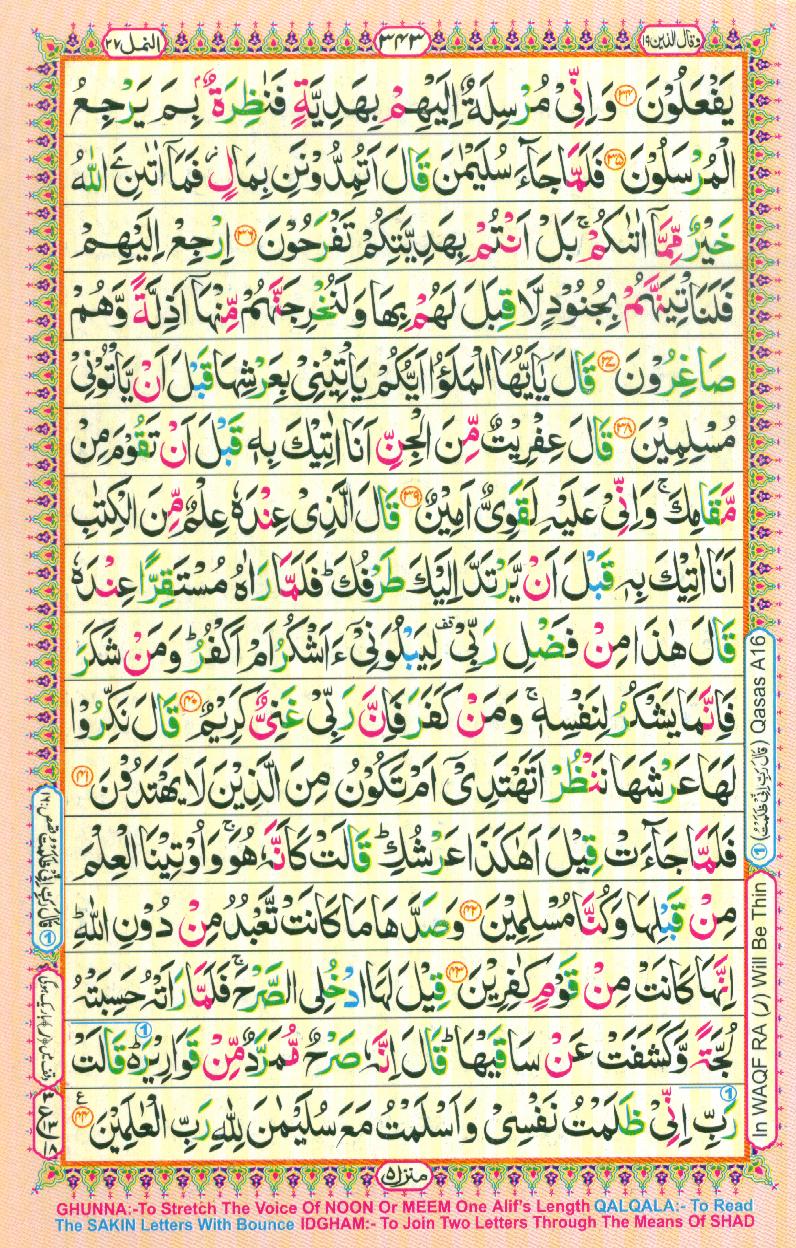 وقال الذین ١٩
٣٤٣
النمل ٢٧
يَفْعَلُوْنَ ﴿٣٤﴾ وَاِنِّىْ مُرْسِلَةٌ اِلَيْهِمْ بِهَدِيَّةٍ فَنٰظِرَةٌۢ بِمَ يَرْجِعُ
الْمُرْسَلُوْنَ ﴿٣٥﴾ فَلَمَّا جَآءَ سُلَيْمٰنَ قَالَ اَتُمِدُّوْنَنِ بِمَالٍ فَمَاۤ اٰتٰىنِۦَ اللّٰهُ
خَيْرٌ مِّمَّاۤ اٰتٰىكُمْ ۚ بَلْ اَنْتُمْ بِهَدِيَّتِكُمْ تَفْرَحُوْنَ ﴿٣٦﴾ اِرْجِعْ اِلَيْهِمْ
فَلَنَاْتِيَنَّهُمْ بِجُنُوْدٍ لَّا قِبَلَ لَهُمْ بِهَا وَلَنُخْرِجَنَّهُمْ مِّنْهَاۤ اَذِلَّةً وَّهُمْ
صَاغِرُوْنَ ﴿٣٧﴾ قَالَ يٰۤاَيُّهَا الْمَلَؤُا اَيُّكُمْ يَاْتِيْنِىْ بِعَرْشِهَا قَبْلَ اَنْ يَّاْتُوْنِىْ
مُسْلِمِيْنَ ﴿٣٨﴾ قَالَ عِفْرِيْتٌ مِّنَ الْجِنِّ اَنَا اٰتِيْكَ بِهٖ قَبْلَ اَنْ تَقُوْمَ مِنْ
مَّقَامِكَ ۚ وَاِنِّىْ عَلَيْهِ لَقَوِىٌّ اَمِيْنٌ ﴿٣٩﴾ قَالَ الَّذِىْ عِنْدَهٗ عِلْمٌ مِّنَ الْكِتٰبِ
اَنَا اٰتِيْكَ بِهٖ قَبْلَ اَنْ يَّرْتَدَّ اِلَيْكَ طَرْفُكَ ؕ فَلَمَّا رَاٰهُ مُسْتَقِرًّا عِنْدَهٗ
قَالَ هٰذَا مِنْ فَضْلِ رَبِّىْ ۖ لِيَبْلُوَنِىْٓ ءَاَشْكُرُ اَمْ اَكْفُرُ ؕ وَمَنْ شَكَرَ
فَاِنَّمَا يَشْكُرُ لِنَفْسِهٖ ۚ وَمَنْ كَفَرَ فَاِنَّ رَبِّىْ غَنِىٌّ كَرِيْمٌ ﴿٤٠﴾ قَالَ نَكِّرُوْا
لَهَا عَرْشَهَا نَنْظُرْ اَتَهْتَدِىْٓ اَمْ تَكُوْنُ مِنَ الَّذِيْنَ لَا يَهْتَدُوْنَ ﴿٤١﴾
فَلَمَّا جَآءَتْ قِيْلَ اَهٰكَذَا عَرْشُكِ ؕ قَالَتْ كَاَنَّهٗ هُوَ ۚ وَاُوْتِيْنَا الْعِلْمَ
مِنْ قَبْلِهَا وَكُنَّا مُسْلِمِيْنَ ﴿٤٢﴾ وَصَدَّهَا مَا كَانَتْ تَّعْبُدُ مِنْ دُوْنِ اللّٰهِ ؕ
اِنَّهَا كَانَتْ مِنْ قَوْمٍ كٰفِرِيْنَ ﴿٤٣﴾ قِيْلَ لَهَا ادْخُلِى الصَّرْحَ ۚ فَلَمَّا رَاَتْهُ حَسِبَتْهُ
لُجَّةً وَّكَشَفَتْ عَنْ سَاقَيْهَا ؕ قَالَ اِنَّهٗ صَرْحٌ مُّمَرَّدٌ مِّنْ قَوَارِيْرَ ؕ قَالَتْ
رَبِّ اِنِّىْ ظَلَمْتُ نَفْسِىْ وَاَسْلَمْتُ مَعَ سُلَيْمٰنَ لِلّٰهِ رَبِّ الْعٰلَمِيْنَ ﴿٤٤﴾
منزل ٥
(قَالَ رَبِّ اِنِّىْ ظَلَمْتُ) Qasas A16
In WAQF RA (ر) Will Be Thin
GHUNNA:-To Stretch The Voice Of NOON Or MEEM One Alif's Length QALQALA:- To Read
The SAKIN Letters With Bounce IDGHAM:- To Join Two Letters Through The Means Of SHAD